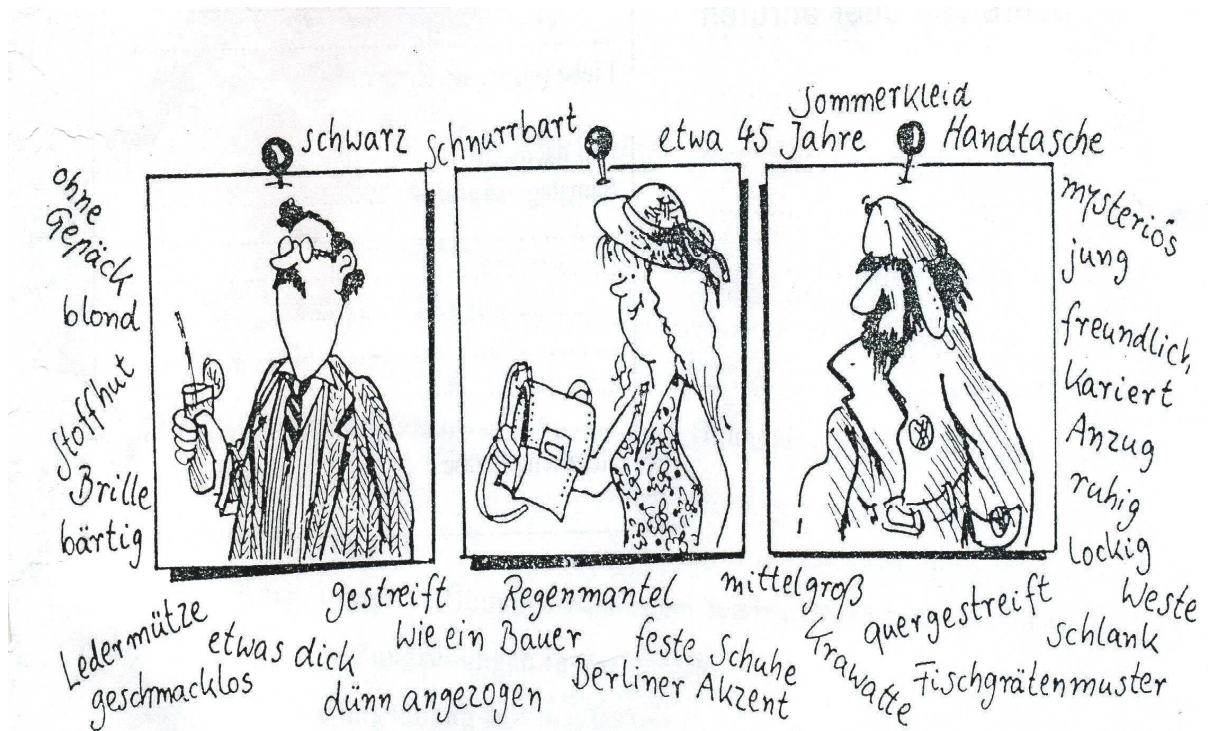 Sommerkleid
schwarz
Schnurrbart
etwa 45 Jahre
Handtasche
ohne
Gepäck
blond
Stoffhut
Brille
bärtig
mysteriös
jung
freundlich
Kariert
Anzug
ruhig
lockig
Weste
Ledermütze
geschmacklos
etwas dick
gestreift
wie ein Bauer
dünn angezogen
Regenmantel
feste Schuhe
Berliner Akzent
mittelgroß
Krawatte
quergestreift
schlank
Fischgrätenmuster